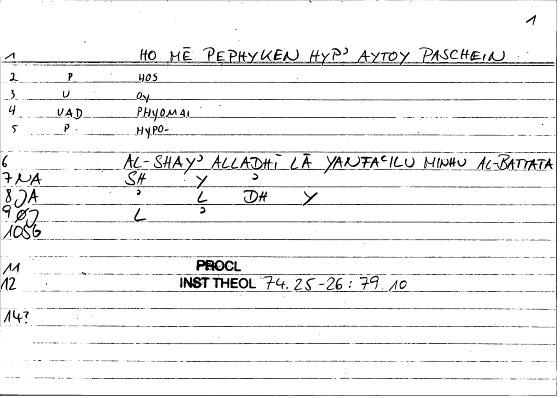 1
1 HO MĒ PEPHYKEN HYP' AYTOY PASCHEIN
2 P HOS
3 U OY
4 VAD PHYOMAI
5 P. HYPO-
6 AL-SHAY' ALLADHĪ LĀ YANFAʿILU MINHU AL-BATTATA
7 NA SH Y '
8 JA ' L DH Y
9 ØJ L '
10SG
11 PROCL
12 INST THEOL 74.25-26: 79.10
14?